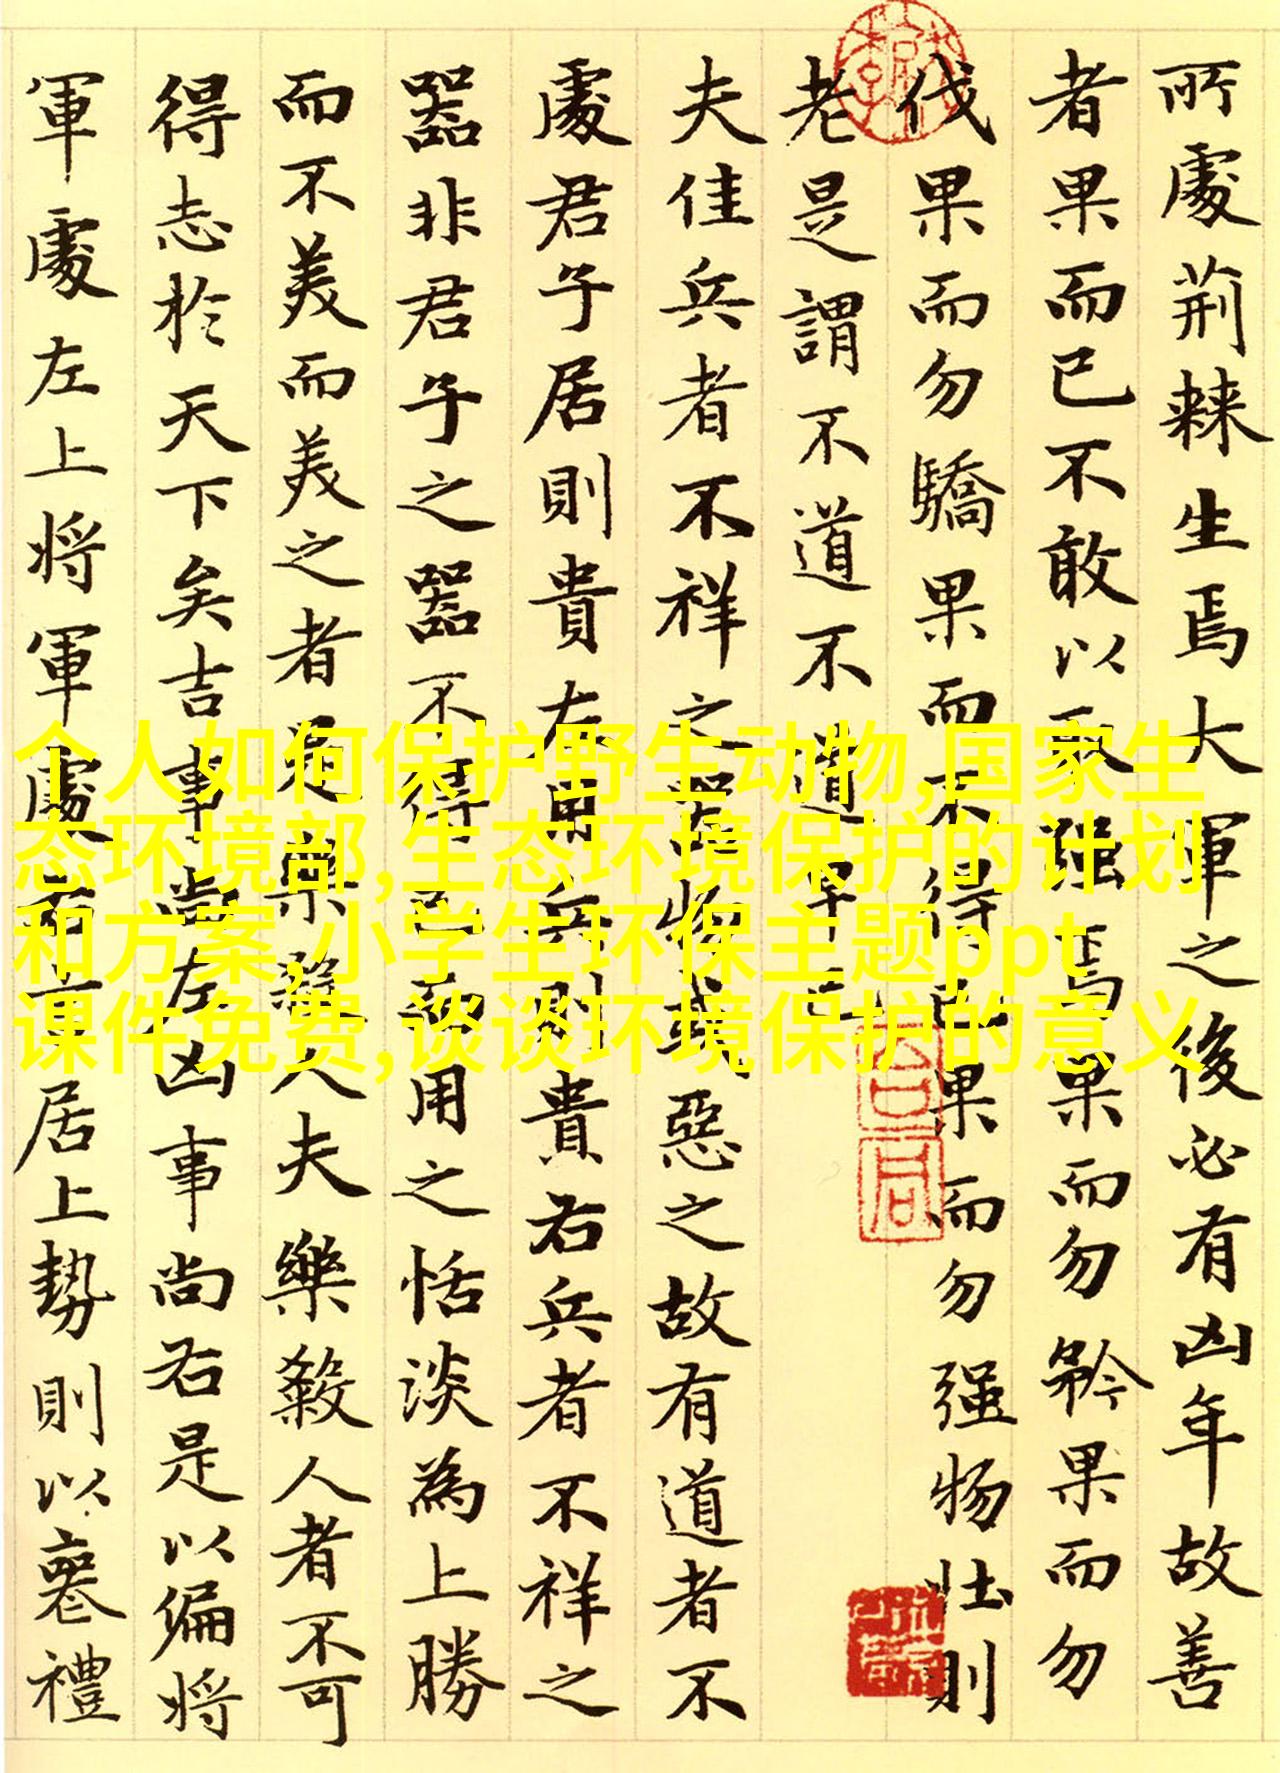 所處荆棘生焉大軍之後必有凶年故善
者果而已不敢以取强焉果而勿矜果而勿
伐果而勿驕果而不得已果而勿强物壯則
老是謂不道不道早已
夫佳兵者不祥之器物或惡之故有道者不
處君子居則貴左用兵則貴右兵者不祥之
器非君子之器不得已而用之恬淡為上勝
而不美而美之者是樂殺人夫樂殺人者不可
得志於天下矣吉事尚左凶事尚右是以偏將
軍處左上將軍處右言居上勢則以喪禮
个人如何保护野生动物,国家生
态环境部,生态环境保护的计划
和方案,小学生环保主题ppt
课件免费,谈谈环境保护的意义